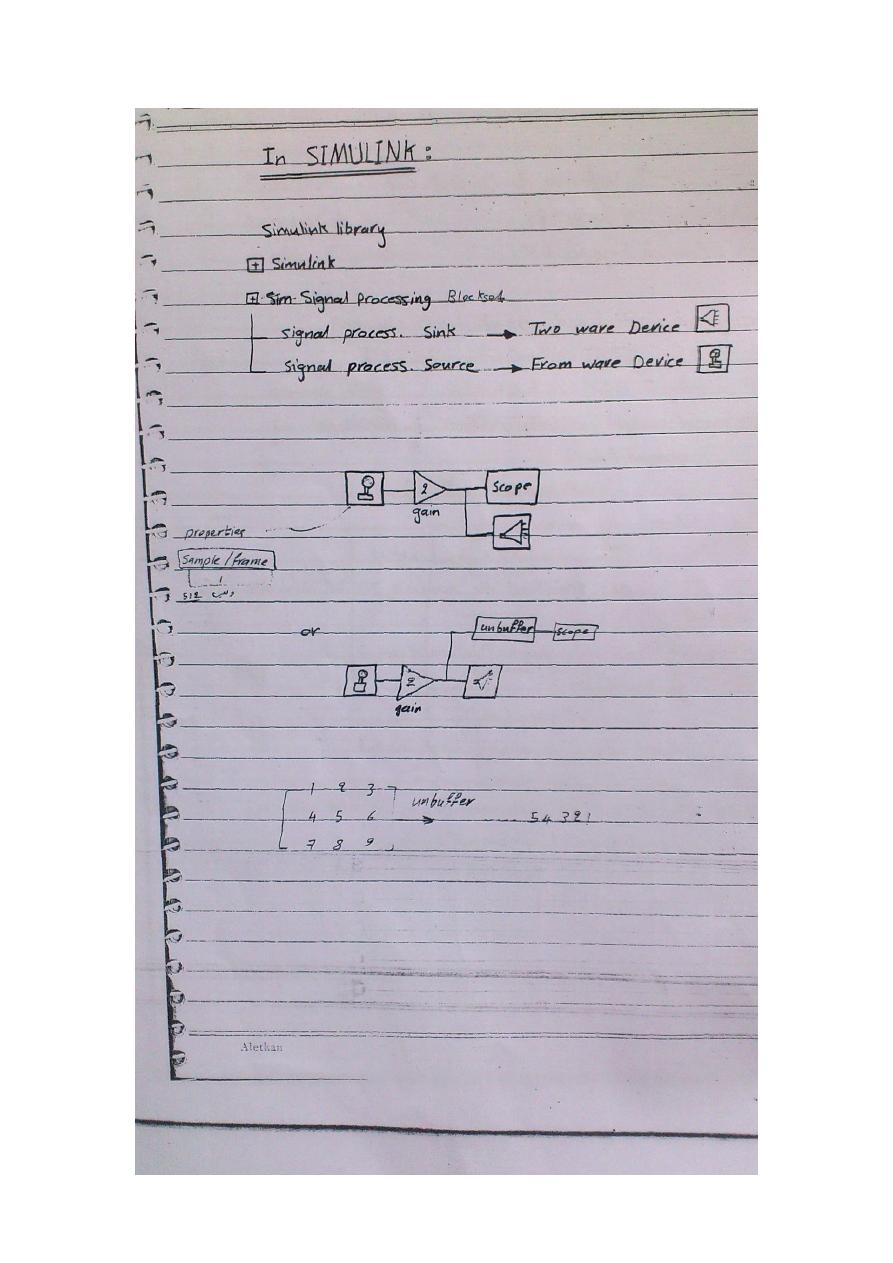 In SIMULINK :
Simulink library
+ Simulink
+ Sim-Signal processing Blockset
signal process. Sink → Two wave Device
signal process. Source → From wave Device
2 scope
gain
properties
Sample / frame
512
or
unbuffer scope
2
gain
1 2 3
unbuffer
4 5 6 → 5 4 3 2 1
7 8 9
Aletkan